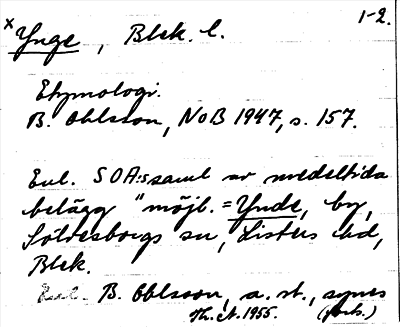 1-2.
x Ynge, Blek. l.
Etymologi.
B. Ohlsson, NoB 1947, s. 157.
Enl. SOA:s saml av medeltida
belägg "möjl. = Ynde, by,
Sölvesborgs sn, Listers hd,
Blek.
Enl. B. Ohlsson, a. st., synes
Th. et. 1955. (forts.)